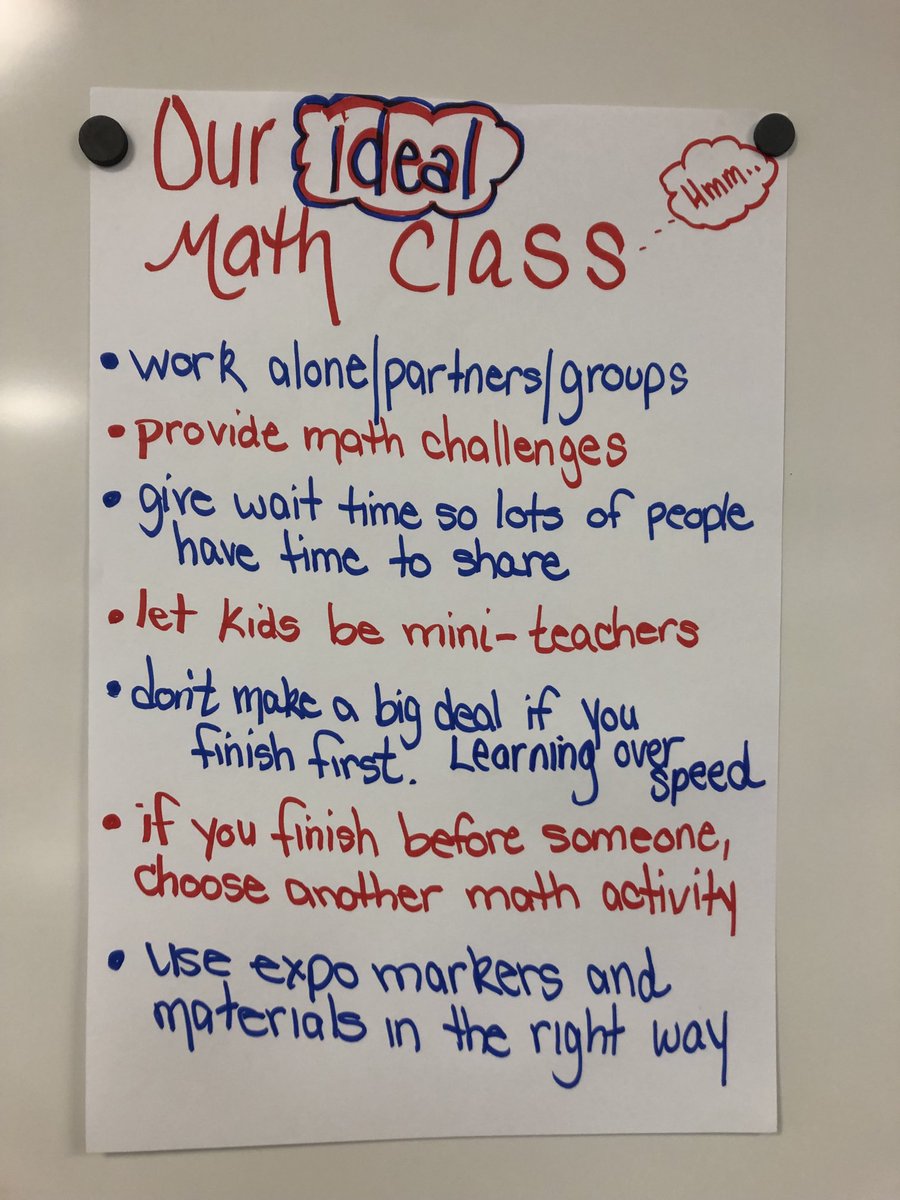 Our ideal
Hmm..
Math Class
• work alone/partners/groups
• provide math challenges
• give wait time so lots of people
have time to share
• let kids be mini-teachers
• don't make a big deal if you
finish first. Learning over
speed
• if you finish before someone,
choose another math activity
• use expo markers and
materials in the right way